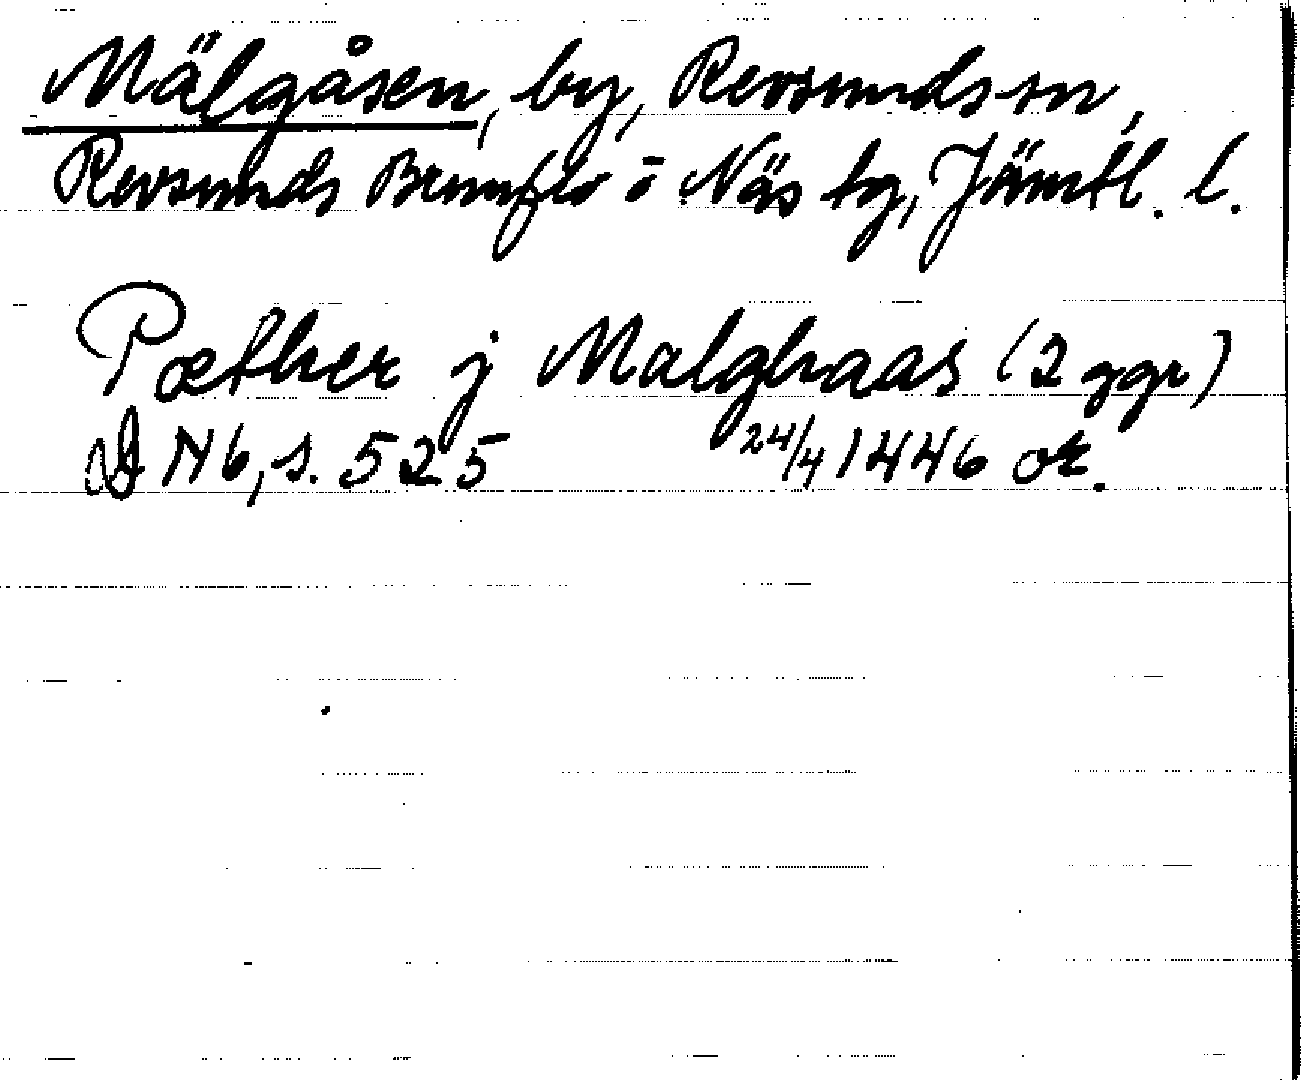 Mälgåsen, by, Revsunds sn,
Revsunds Brunflo o Näs tg, Jämtl. l.
Pæther j Malghaas (2 ggr)
DN 6, s. 525 24/4 1446 or.